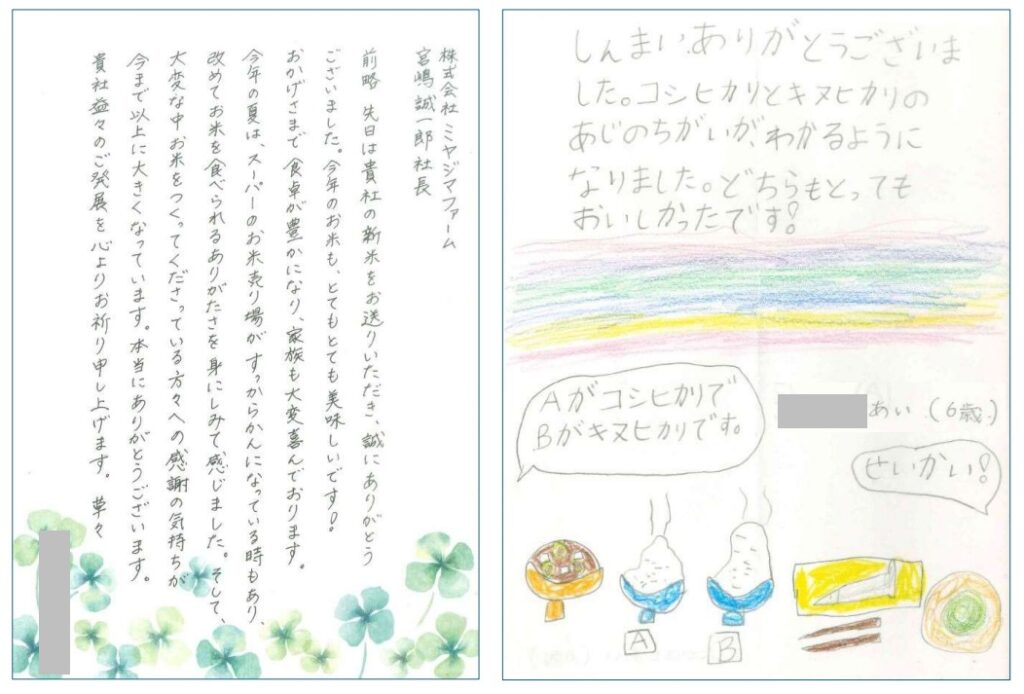 株式会社 ミヤジマファーム
宮嶋誠一郎社長
前略 先日は貴社の新米をお送りいただき、誠にありがとう
ございました。今年のお米も、とてもとても美味しいです!
おかげさまで食卓が豊かになり、家族も大変喜んでおります。
今年の夏は、スーパーのお米売り場がすっからかんになっている時もあり、
改めてお米を食べられるありがたさを身にしみて感じました。そして、
大変な中お米をつくってくださっている方々への感謝の気持ちが
今まで以上に大きくなっています。本当にありがとうございます。
貴社益々のご発展を心よりお祈り申し上げます。 草々
しんまいありがとうございま
した。コシヒカリとキヌヒカリの
あじのちがいが、わかるように
なりました。どちらもとっても
おいしかったです!
Aがコシヒカリで
Bがキヌヒカリです。
あい (6歳)
せいかい!
A
B